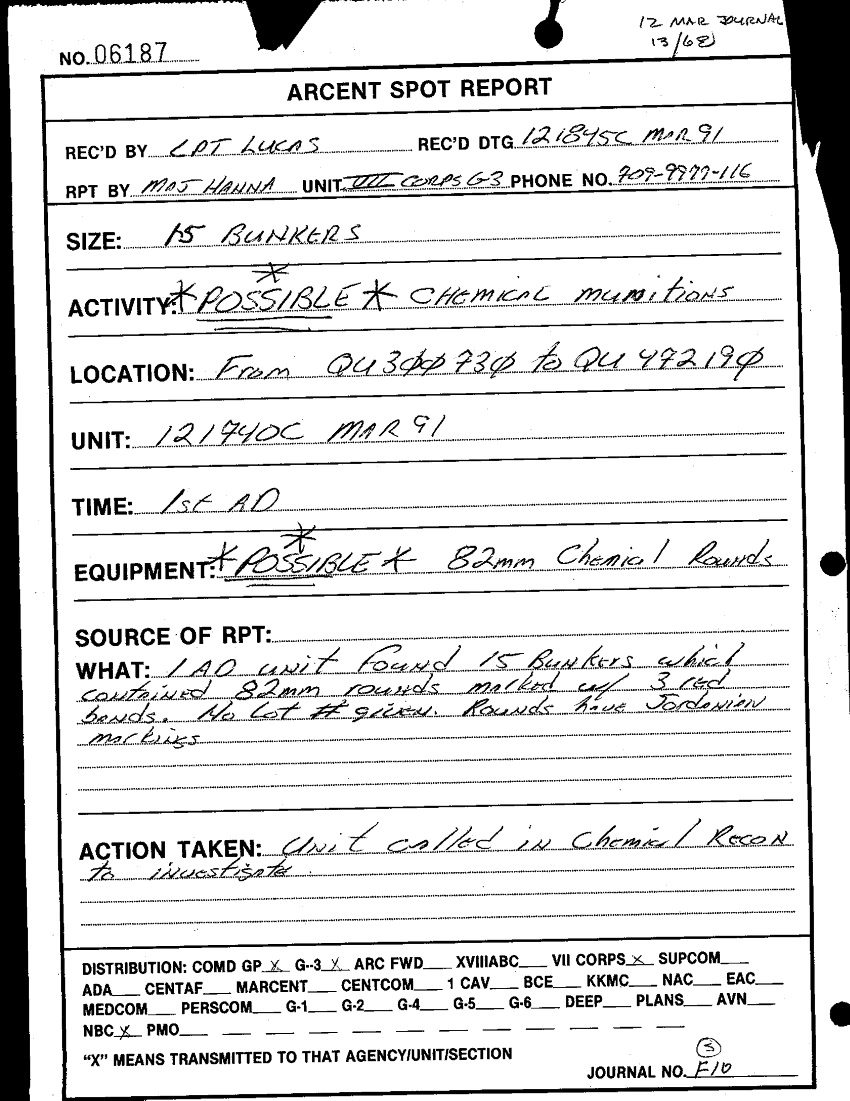 12 MAR JOURNAL
13/68
NO. 06187
ARCENT SPOT REPORT
REC'D BY CPT LUCAS REC'D DTG 121845C MAR 91
RPT BY MAJ HANNA UNIT VII CORPS G-3 PHONE NO. 709-9977-116
SIZE: 15 BUNKERS
*
ACTIVITY: *POSSIBLE* CHEMICAL MUNITIONS
LOCATION: From QU 300730 to QU 472190
UNIT: 121740C MAR 91
TIME: 1st AD
*
EQUIPMENT: *POSSIBLE* 82mm Chemical Rounds
SOURCE OF RPT:
WHAT: 1 AD unit Found 15 Bunkers which
contained 82mm rounds marked w/ 3 red
bands. No Lot # given. Rounds have Jordanian
markings
ACTION TAKEN: Unit called in Chemical Recon
to investigate.
DISTRIBUTION: COMD GP X G--3 X ARC FWD___ XVIIIABC___ VII CORPS X SUPCOM___
ADA___ CENTAF___ MARCENT___ CENTCOM___ 1 CAV___ BCE___ KKMC___ NAC___ EAC___
MEDCOM___ PERSCOM___ G-1___ G-2___ G-4___ G-5___ G-6___ DEEP___ PLANS___ AVN___
NBC X PMO___ ___ ___ ___ ___ ___ ___ ___ ___ ___ ___ ___
"X" MEANS TRANSMITTED TO THAT AGENCY/UNIT/SECTION
S
JOURNAL NO. F10